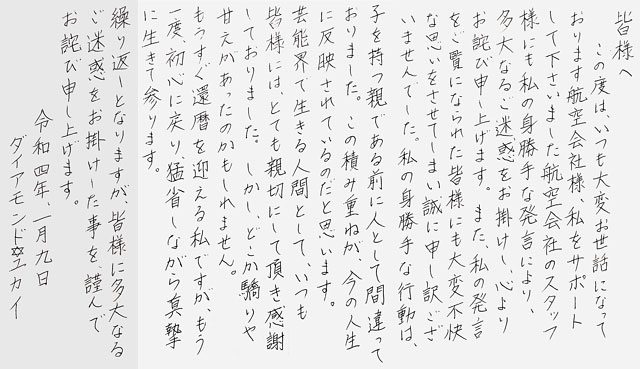 皆様へ
この度は、いつも大変お世話になって
おります航空会社様、私をサポート
して下さいました航空会社のスタッフ
様にも私の身勝手な発言により、
多大なるご迷惑をお掛けし、心より
お詫び申し上げます。また、私の発言
をご覧になられた皆様にも大変不快
な思いをさせてしまい誠に申し訳ござ
いませんでした。私の身勝手な行動は、
子を持つ親である前に人として間違って
おりました。この積み重ねが、今の人生
に反映されているのだと思います。
芸能界で生きる人間として、いつも
皆様には、とても親切にして頂き感謝
しておりました。しかしどこか驕りや
甘えがあったのかもしれません。
もうすぐ還暦を迎える私ですが、もう
一度、初心に戻り、猛省しながら真摯
に生きて参ります。
繰り返しとなりますが、皆様に多大なる
ご迷惑をお掛けした事を、謹んで
お詫び申し上げます。
令和四年、一月九日
ダイアモンド☆ユカイ